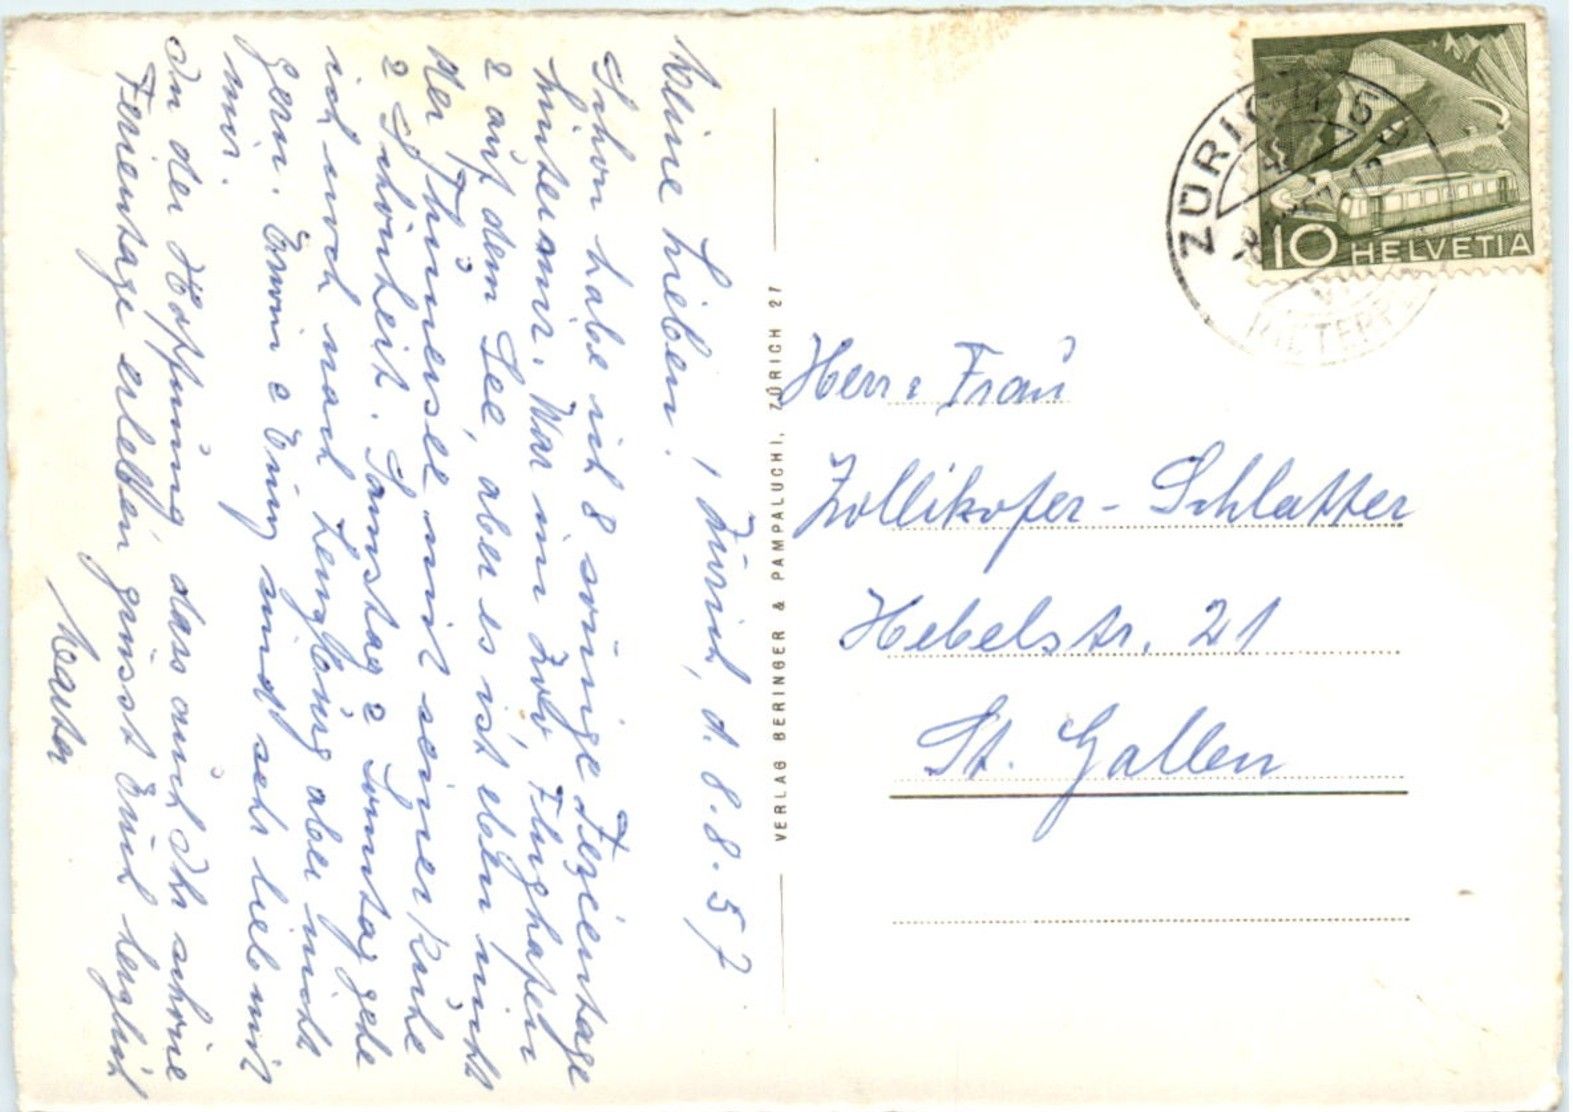 Meine Lieben! Zürich, d. 8.8.57
Schon habe ich 8 sonnige Ferientage
hinter mir. War im Zoo, Flughafen
& auf dem See, aber es ist eben nicht
der Thunersee mit seiner Ruhe
& Schönheit. Samstag & Sonntag gehe
ich noch nach Lenzburg aber nicht
gern. Erwin & Emmy sind sehr lieb mit
mir.
In der Hoffnung, dass auch Ihr schöne
Ferientage erleben grüsst Euch herzlich
VERLAG BERINGER & PAMPALUCHI, ZÜRICH 27
ZÜRICH
10 HELVETIA
Herr & Frau
Zollikofer-Schlatter
Hebelstr. 21
St. Gallen